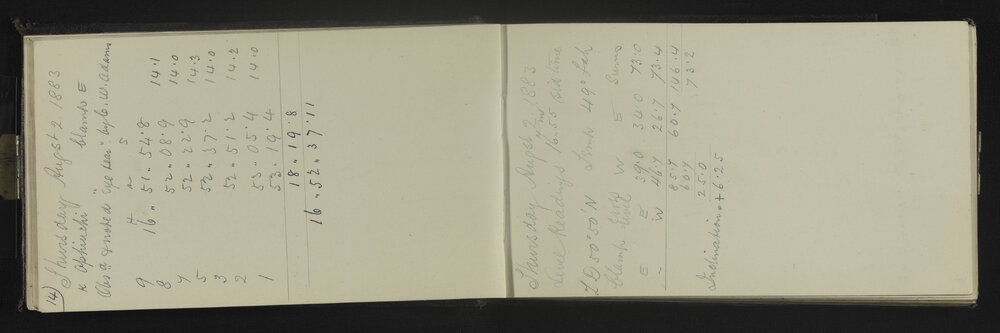 14)
Thursday August 2. 1883
K Ophiuchi Clamp E
Obsd & noted "Eye & Ear" by C. W. Adams
H m s
9 16 " 51 " 54.8 14.1
8 52 " 08.9 14.0
7 52 " 22.9 14.3
5 52 " 37.2 14.0
3 52 " 51.2 14.2
2 53 " 05.4 14.0
1 53 " 19.4
18 " 19.8
16 " 52 " 37.11
Thursday August 2 1883
Level Readings 16.55 Sid time
ZD 50° 50' N Temp 49° Fah
Clamp W E Sums
level
E E 39.0 34.0 73.0
- W 46.7 26.7 73.4
85.7 60.7 146.4
60.7 73.2
25.0
Inclination = + 6.25